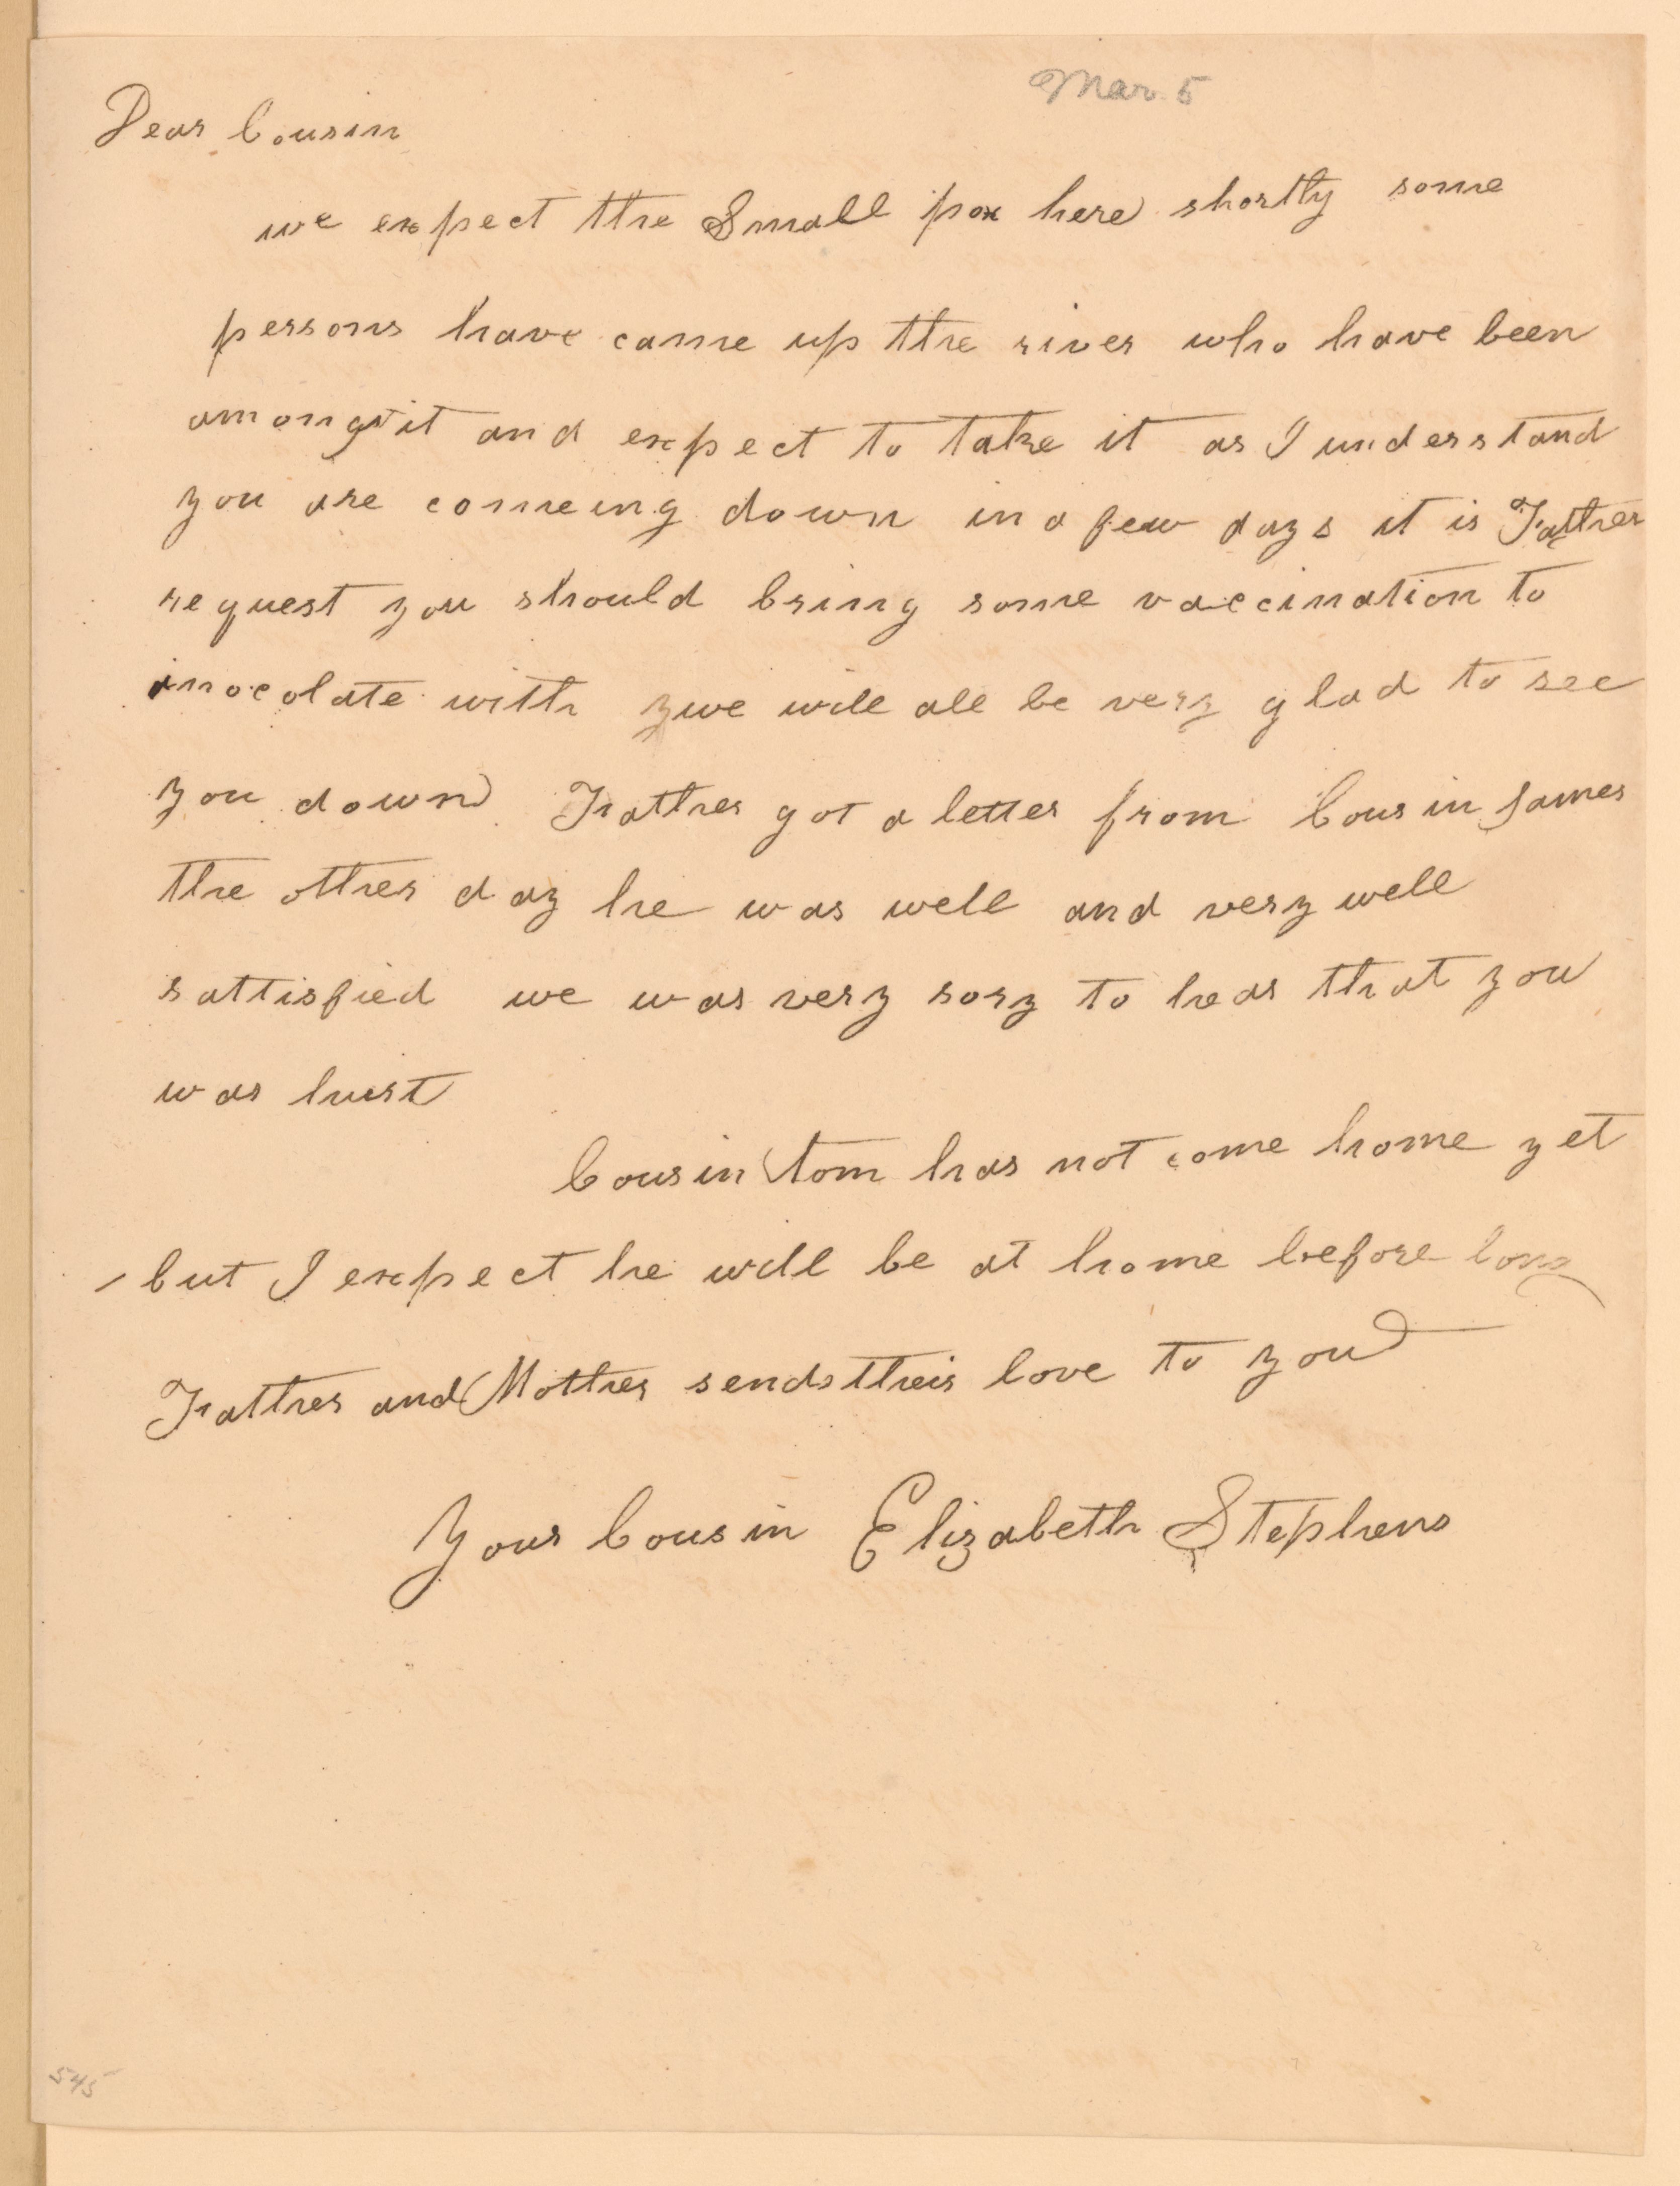 Mar. 5
Dear Cousin
we expect the Small pox here shortly some
persons have came up the river who have been
amongst it and expect to take it as I understand
you are comeing down in a few days it is Father
request you should bring some vaccination to
inocolate with we will all be very glad to see
you down Father got a letter from Cousin James
the other day he was well and very well
sattisfied we was very sory to hear that you
was hurt
Cousin tom has not come home yet
but I expect he will be at home before long
Father and Mother sends their love to you
Your Cousin Elizabeth Stephens
545